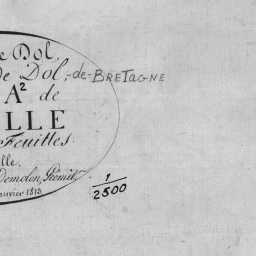 e Dol,
de Dol,-de-BRETAGNE
A² de
LLE
Feuilles.
lle.
Demolon, Géomètre
Janvier 1813
1/2500